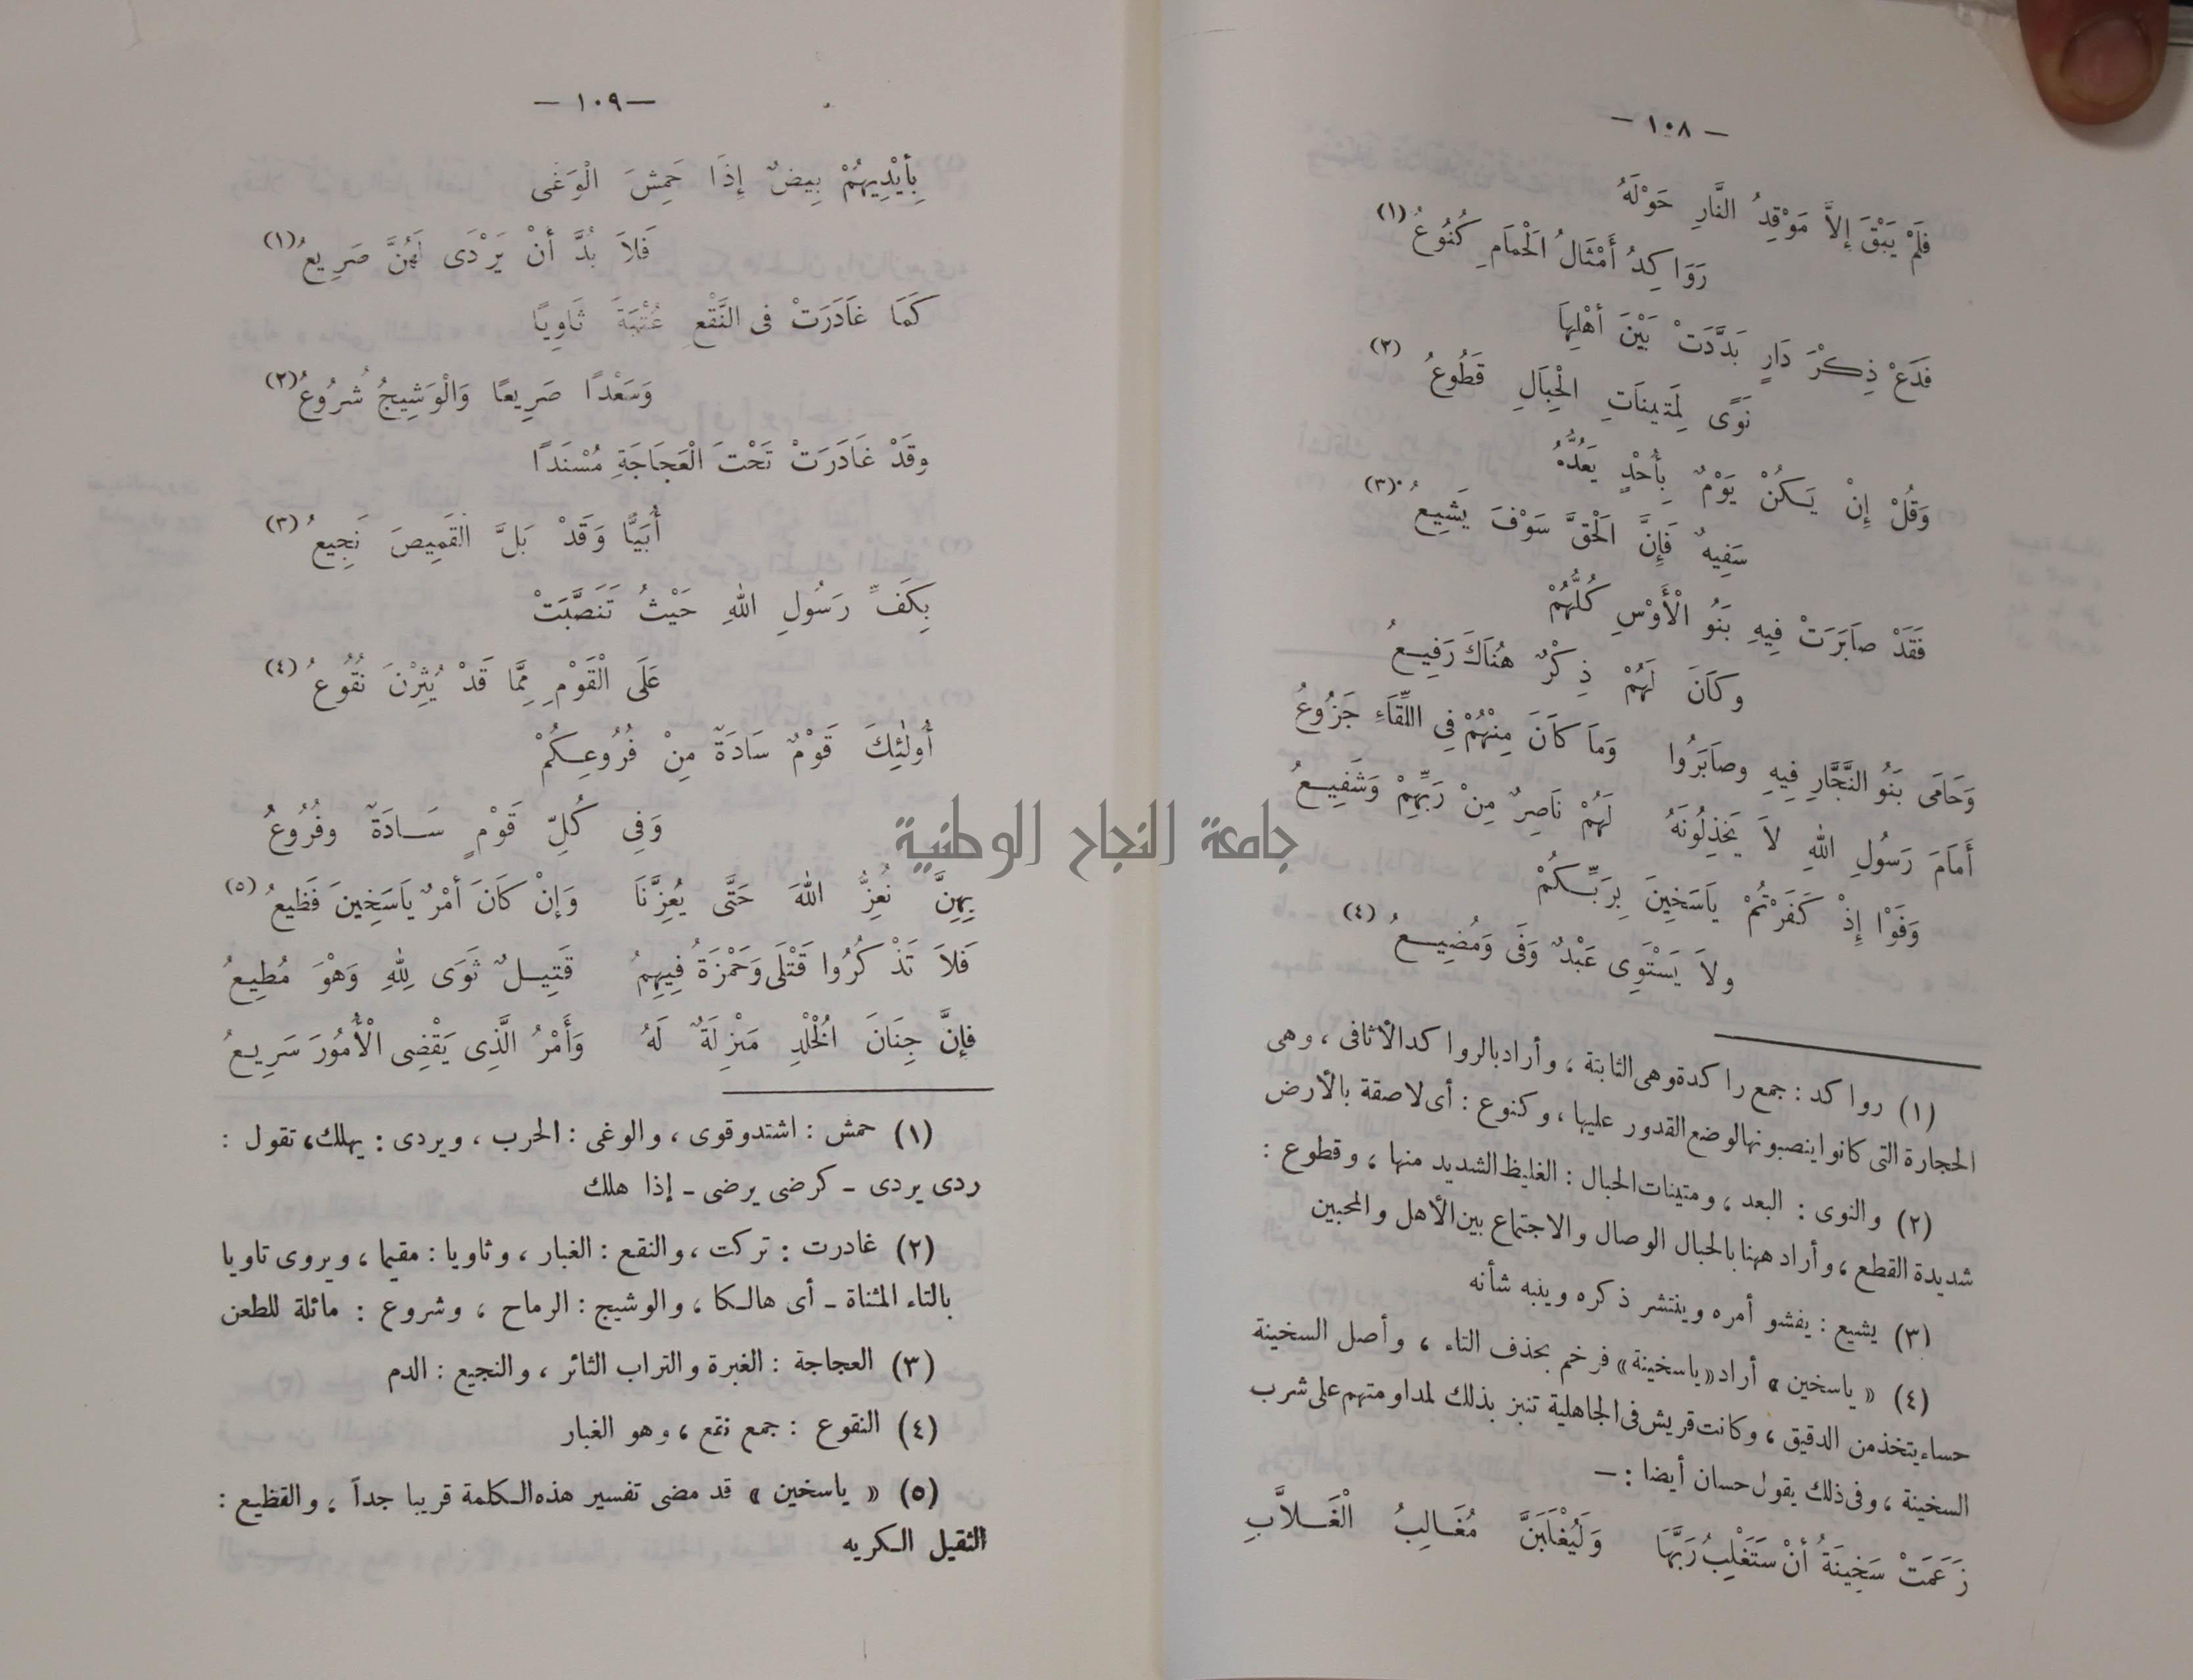 — ١٠٨ —
فَلَمْ يَبْقَ إِلاَّ مَوْقِدُ النَّارِ حَوْلَهُ
رَوَاكِدُ أَمْثَالُ الْحَمَامِ كُنُوعُ (١)
فَدَعْ ذِكْرَ دَارٍ بَدَّدَتْ بَيْنَ أَهْلِهَا
نَوًى لِمَتِينَاتِ الْحِبَالِ قَطُوعُ (٢)
وَقُلْ إِنْ يَكُنْ يَوْمٌ بِأُحْدٍ يَعُدُّهُ
سَفِيهٌ فَإِنَّ الْحَقَّ سَوْفَ يَشِيعُ (٣)
فَقَدْ صَابَرَتْ فِيهِ بَنُو الْأَوْسِ كُلُّهُمْ
وَكَانَ لَهُمْ ذِكْرٌ هُنَاكَ رَفِيعُ
وَحَامَى بَنُو النَّجَّارِ فِيهِ وصَابَرُوا وَمَا كَانَ مِنْهُمْ فِي اللِّقَاءِ جَزُوعُ
أَمَامَ رَسُولِ اللهِ لاَ يَخْذِلُونَهُ لَهُمْ نَاصِرٌ مِنْ رَبِّهِمْ وَشَفِيعُ
وَفَوْا إِذْ كَفَرْتُمْ يَاسَخِينَ بِرَبِّكُمْ
ولاَ يَسْتَوِى عَبْدٌ وَفَى وَمُضِيعُ (٤)
(١) رواكد : جمع راكدة وهى الثابتة ، وأراد بالرواكد الأثافى ، وهى
الحجارة التى كانوا ينصبونها لوضع القدور عليها ، وكنوع : أى لاصقة بالأرض
(٢) والنوى : البعد ، ومتينات الحبال : الغليظ الشديد منها ، وقطوع :
شديدة القطع ، وأراد ههنا بالحبال الوصال والاجتماع بين الأهل والمحبين
(٣) يشيع : يفشو أمره وينتشر ذكره وينبه شأنه
(٤) « ياسخين » أراد « ياسخينة » فرخم بحذف التاء ، وأصل السخينة
حساء يتخذ من الدقيق ، وكانت قريش فى الجاهلية تنبز بذلك لمداومتهم على شرب
السخينة ، وفى ذلك يقول حسان أيضا : —
زَعَمَتْ سَخِينَةُ أنْ سَتَغْلِبُ رَبَّهَا وَلَيُغْلَبَنَّ مُغَالِبُ الْغَلاَّبِ
— ١٠٩ —
بِأَيْدِيهِمْ بِيضٌ إِذَا حَمِشَ الْوَغَى
فَلاَ بُدَّ أَنْ يَرْدَى لَهُنَّ صَرِيعُ (١)
كَمَا غَادَرَتْ فى النَّقْعِ عُتْبَةَ ثَاوِيًا
وَسَعْدًا صَرِيعًا وَالْوَشِيجُ شُرُوعُ (٢)
وقَدْ غَادَرَتْ تَحْتَ الْعَجَاجَةِ مُسْنَدًا
أُبَيًّا وَقَدْ بَلَّ الْقَمِيصَ نَجِيعُ (٣)
بِكَفِّ رَسُولِ اللهِ حَيْثُ تَنَصَّبَتْ
عَلَى الْقَوْمِ مِمَّا قَدْ يُثِرْنَ نُقُوعُ (٤)
أُولٰئِكَ قَوْمٌ سَادَةٌ مِنْ فُرُوعِكُمْ
وَفِى كُلِّ قَوْمٍ سَادَةٌ وفُرُوعُ
بِهِنَّ نُعِزُّ اللهَ حَتَّى يُعِزَّنَا وَإِنْ كَانَ أَمْرٌ يَاسَخِينَ فَظِيعُ (٥)
فَلاَ تَذْكُرُوا قَتْلَى وَحَمْزَةُ فِيهِمُ قَتِيلٌ ثَوَى لِلهِ وَهْوَ مُطِيعُ
فإنَّ جِنَانَ الْخُلْدِ مَنْزِلَةٌ لَهُ وَأَمْرُ الَّذِى يَقْضِى الْأُمُورَ سَرِيعُ
(١) حمش : اشتد وقوى ، والوغى : الحرب ، ويردى : يهلك، تقول :
ردى يردى - كرضى يرضى - إذا هلك
(٢) غادرت : تركت ، والنقع : الغبار ، وثاويا : مقيما ، ويروى تاويا
بالتاء المثناة - أى هالكا ، والوشيج : الرماح ، وشروع : مائلة للطعن
(٣) العجاجة : الغبرة والتراب الثائر ، والنجيع : الدم
(٤) النقوع : جمع نقع ، وهو الغبار
(٥) « ياسخين » قد مضى تفسير هذه الكلمة قريبا جداً ، والفظيع :
الثقيل الكريه
جامعة النجاح الوطنية